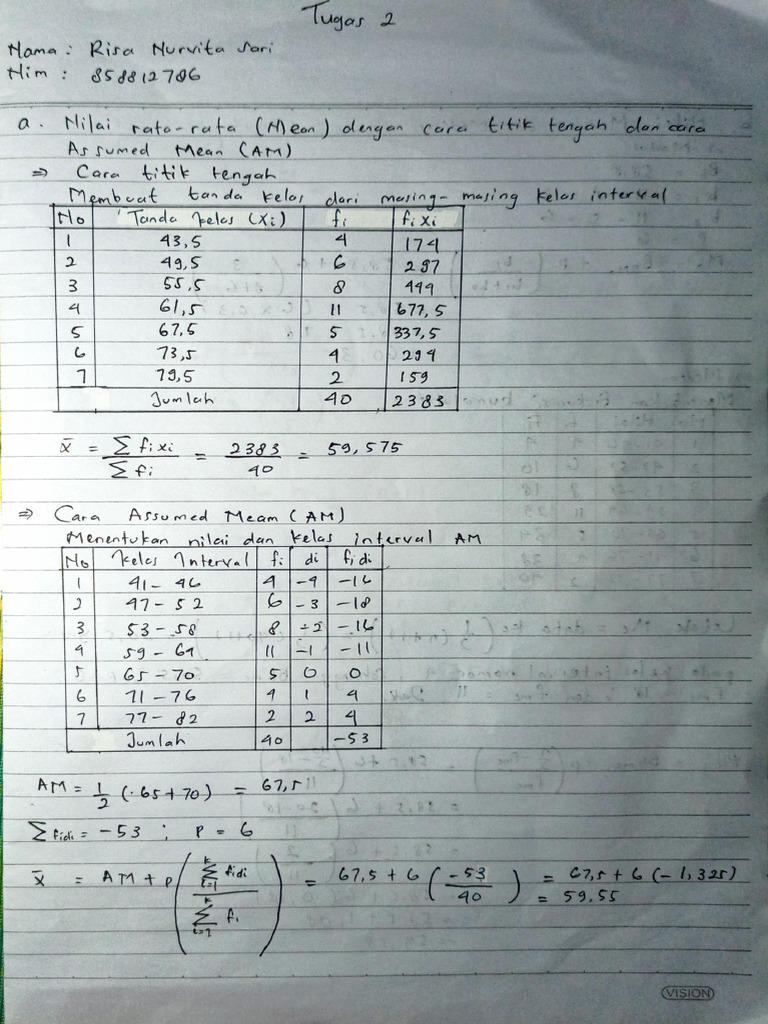 Tugas 2
Nama : Risa Nurvita Sari
Nim : 858812786
a. Nilai rata-rata (Mean) dengan cara titik tengah dan cara
Assumed Mean (AM)
⇒ Cara titik tengah
Membuat tanda kelas dari masing-masing kelas interval
No Tanda kelas (Xi) fi fixi
1 43,5 4 174
2 49,5 6 297
3 55,5 8 444
4 61,5 11 677,5
5 67,5 5 337,5
6 73,5 4 294
7 79,5 2 159
Jumlah 40 2383
x̄ = ∑ fixi / ∑ fi = 2383 / 40 = 59,575
⇒ Cara Assumed Meam (AM)
Menentukan nilai dan kelas interval AM
No Kelas Interval fi di fidi
1 41 - 46 4 -4 -16
2 47 - 52 6 -3 -18
3 53 - 58 8 -2 -16
4 59 - 64 11 -1 -11
5 65 - 70 5 0 0
6 71 - 76 4 1 4
7 77 - 82 2 2 4
Jumlah 40 -53
AM = 1/2 (65+70) = 67,5
∑ fidi = -53 ; P = 6
x̄ = AM + p (∑ᵏᵢ₌₁ fidi / ∑ᵏᵢ₌₁ fi) = 67,5 + 6 (-53 / 40) = 67,5 + 6 (-1,325)
= 59,55
VISION